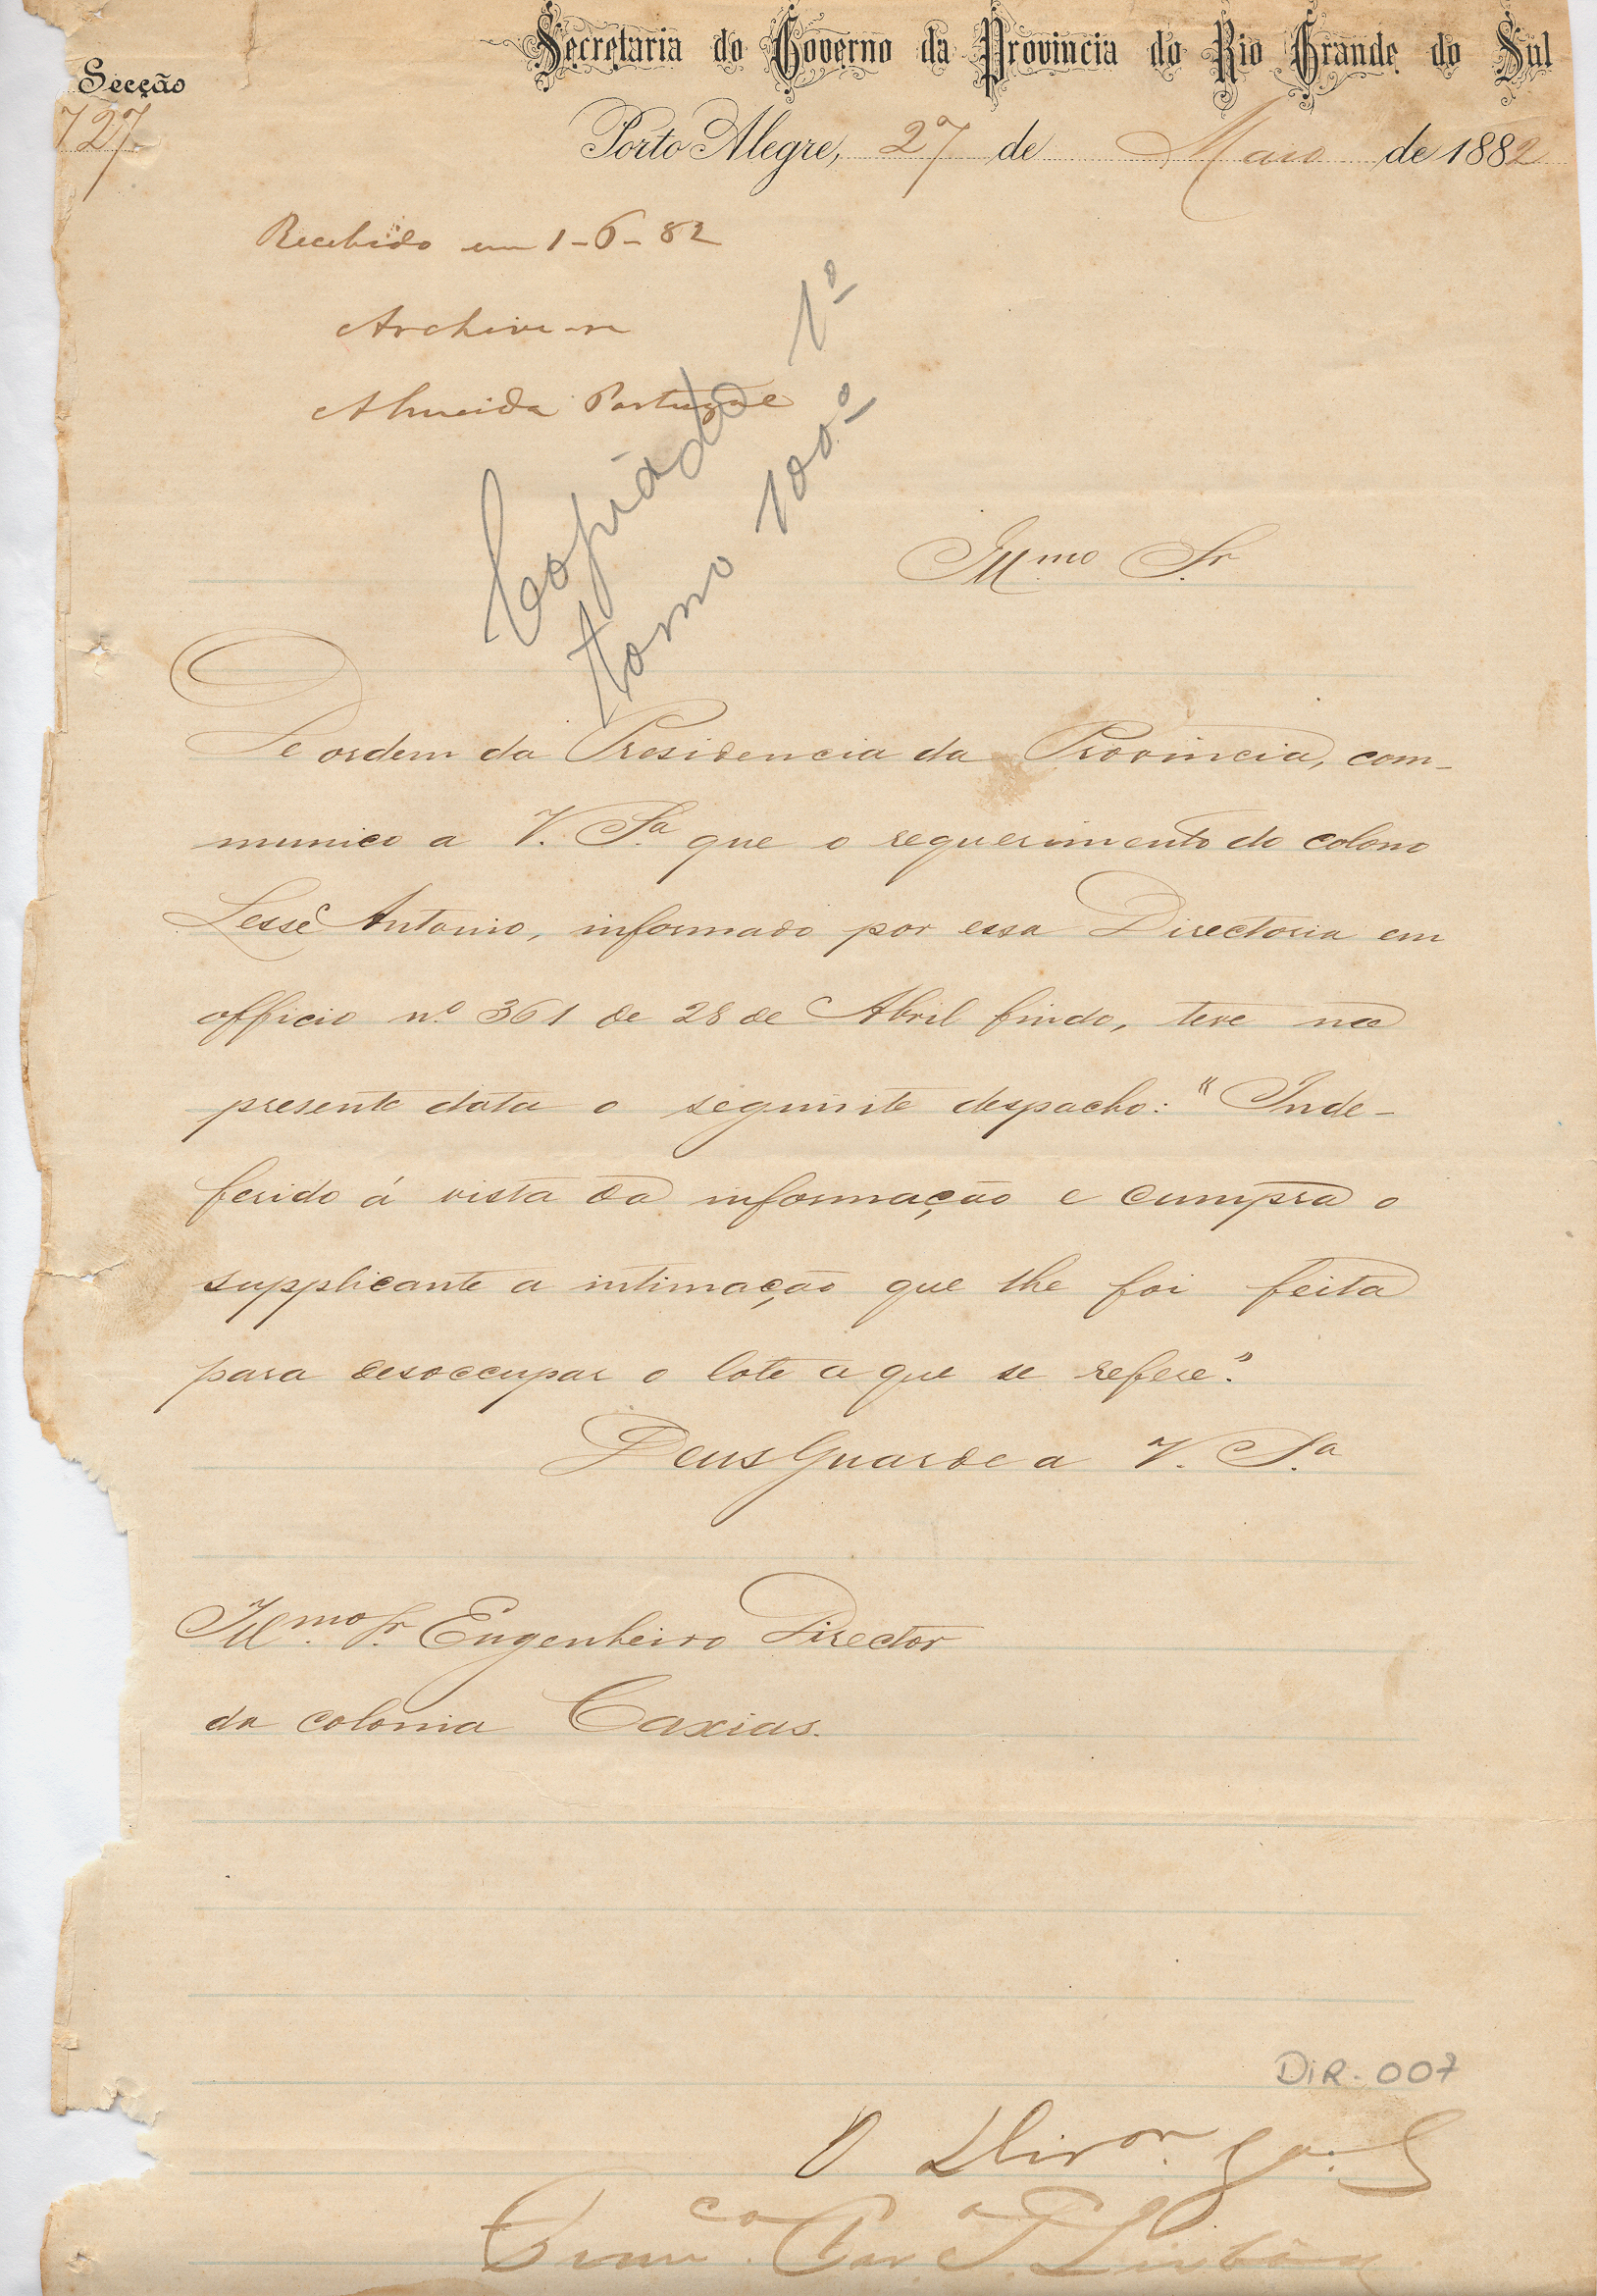 Secretaria do Governo da Provincia do Rio Grande do Sul
Secção
727
Porto Alegre, 27 de Maio de 1882
Recebido em 1-6-82
Archive-se
Almeida Portugal
Copiado 1º
tomo 100º
Illmo Sr
De ordem da Presidencia da Provincia, com-
munico a V. Sa que o requerimento do colono
Lessé Antonio, informado por essa Directoria em
officio nº 361 de 28 de Abril findo, teve na
presente data o seguinte despacho: "Inde-
ferido á vista da informação e cumpra o
supplicante a intimação que lhe foi feita
para desoccupar o lote a que se refere".
Deus Guarde a V. Sa
Illmo Sr Engenheiro Director
da colonia Caxias.
DIR-007
O Diror